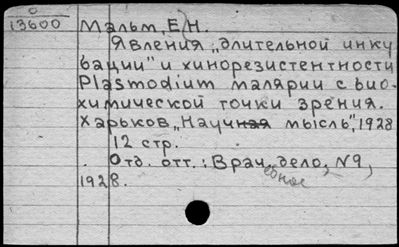 0
13600
Мальм, Е. Н.
Явления „длительной инку
бации" и хинорезистентности
Plasmodium малярии с био-
химической точки зрения.
Харьков, „Научная мысль", 1928
12 стр.
Отд. отт.: Врачебное дело, №9,
1928.